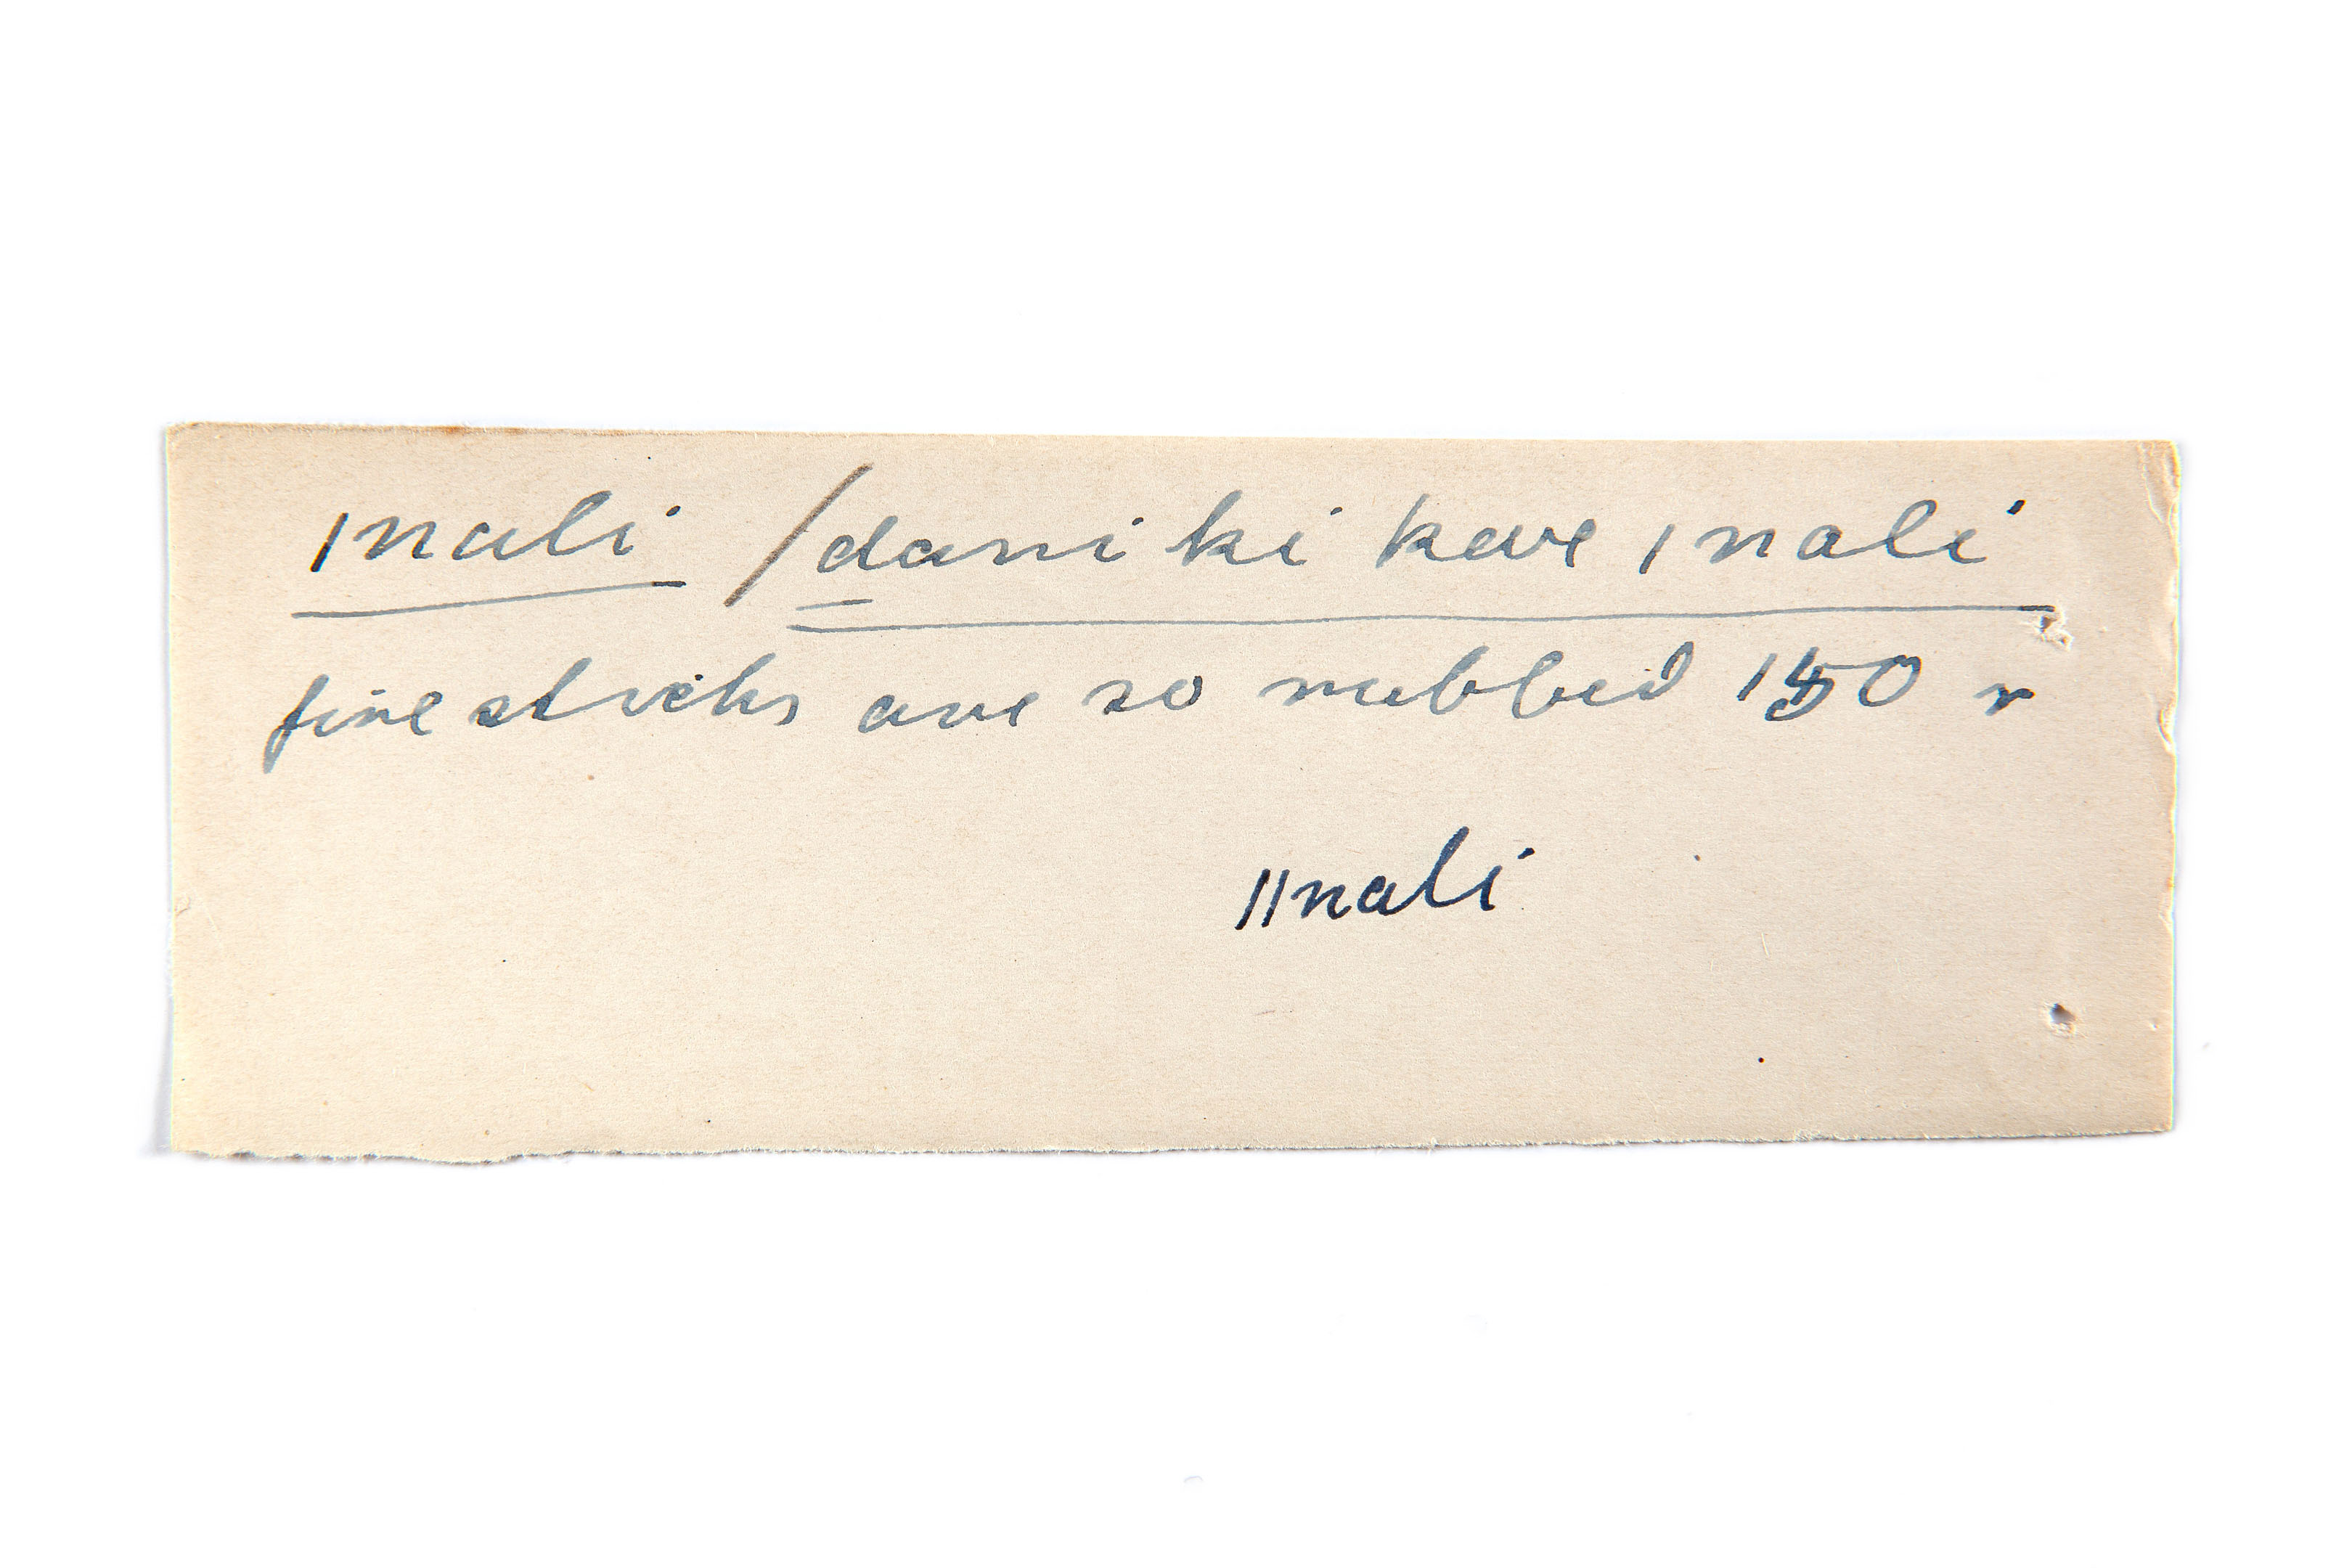 ǀnali /dani ki kere ǀnali
fire sticks are so rubbed 150 r
ǁnali